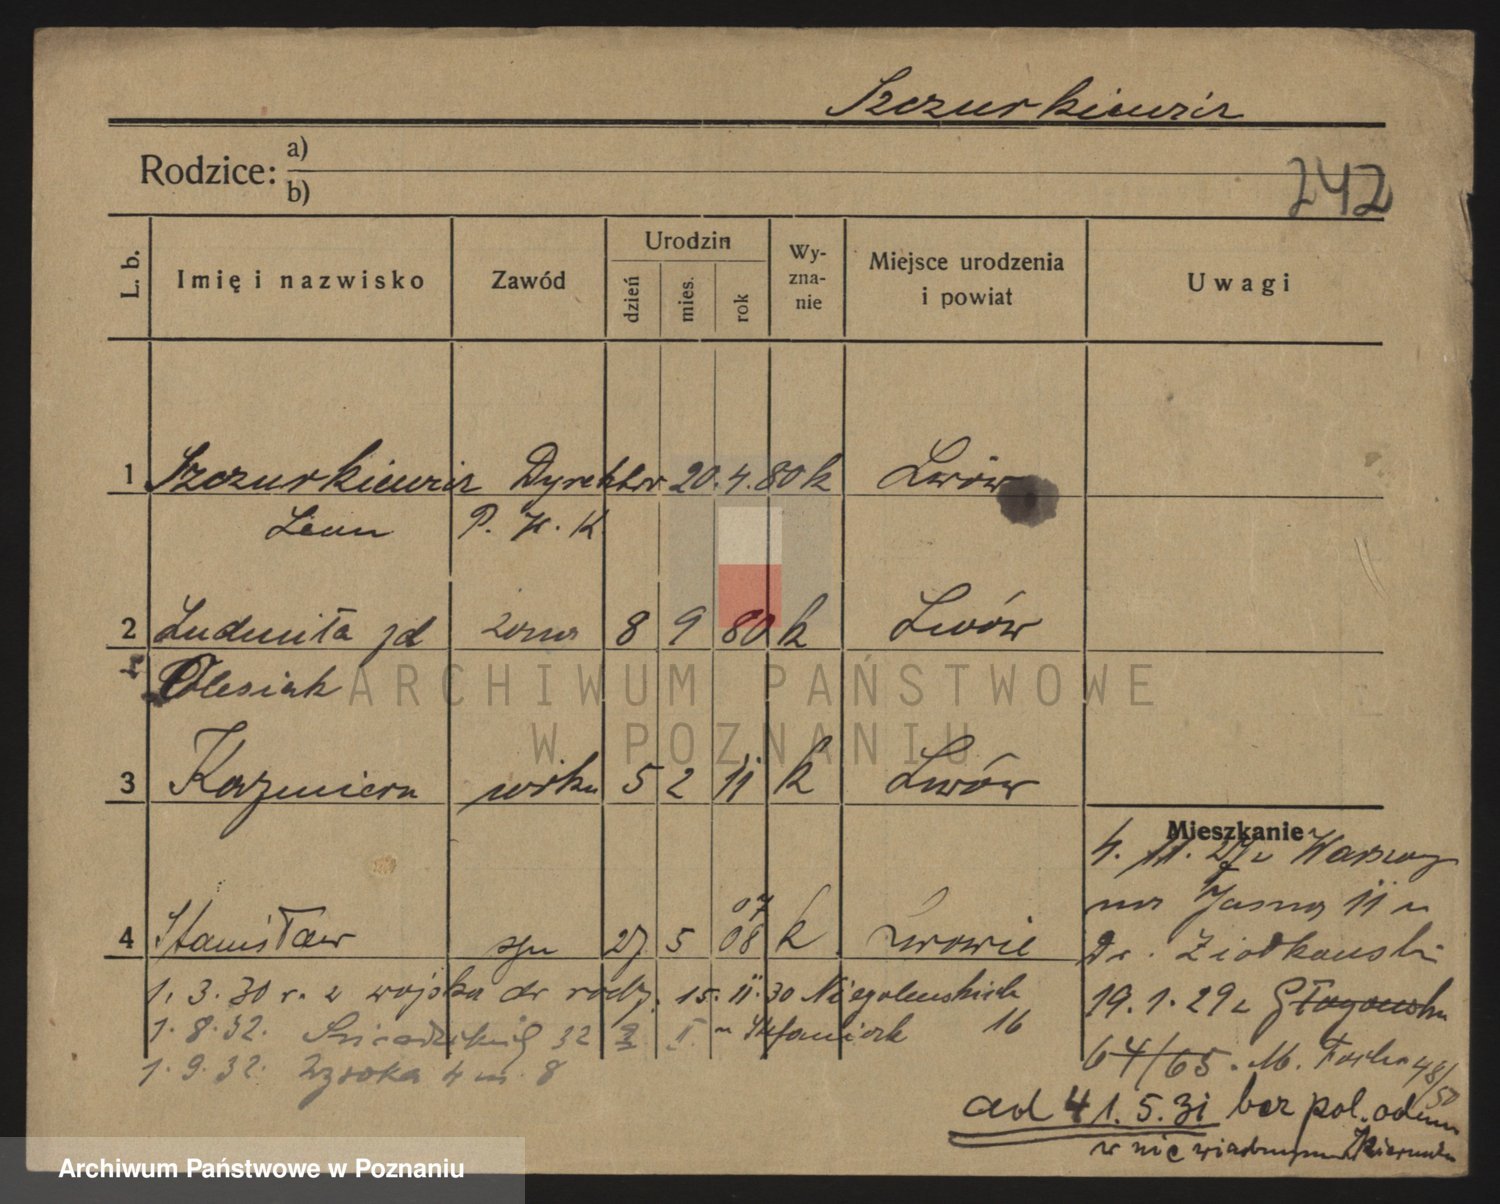 Szczurkiewicz
Rodzice: a)
b)
242
L. b.
Imię i nazwisko
Zawód
Urodzin
dzień
mies.
rok
Wy-
zna-
nie
Miejsce urodzenia
i powiat
Uwagi
1 Szczurkiewicz Dyrektor 20. 4. 80 k Lwów
Leon P. W. K.
2 Ludmiła zd żona 8 9 80 k Lwów
Olesiak
ARCHIWUM PAŃSTWOWE
W POZNANIU
3 Kazimiera 5 2 11 k Lwów
Mieszkanie
4. 11. 27 z Warszawy
na Jasna 11 u
4 Stanisław syn 27 5 07
08 k Lwowie
Dr. Ziołkowski
1. 3. 30 r. z wojska do rodz. 15. 11. 30 Niegolewskich 16
19. 1. 29 z Głogowska
1. 8. 32. 32 u Stefaniak
64/65. M. Focha 48/50
1. 9. 32. Wysoka 4 m. 8
ad 4 1. 5. 31 bez pol. odm
w niewiadomym kierunku
Archiwum Państwowe w Poznaniu